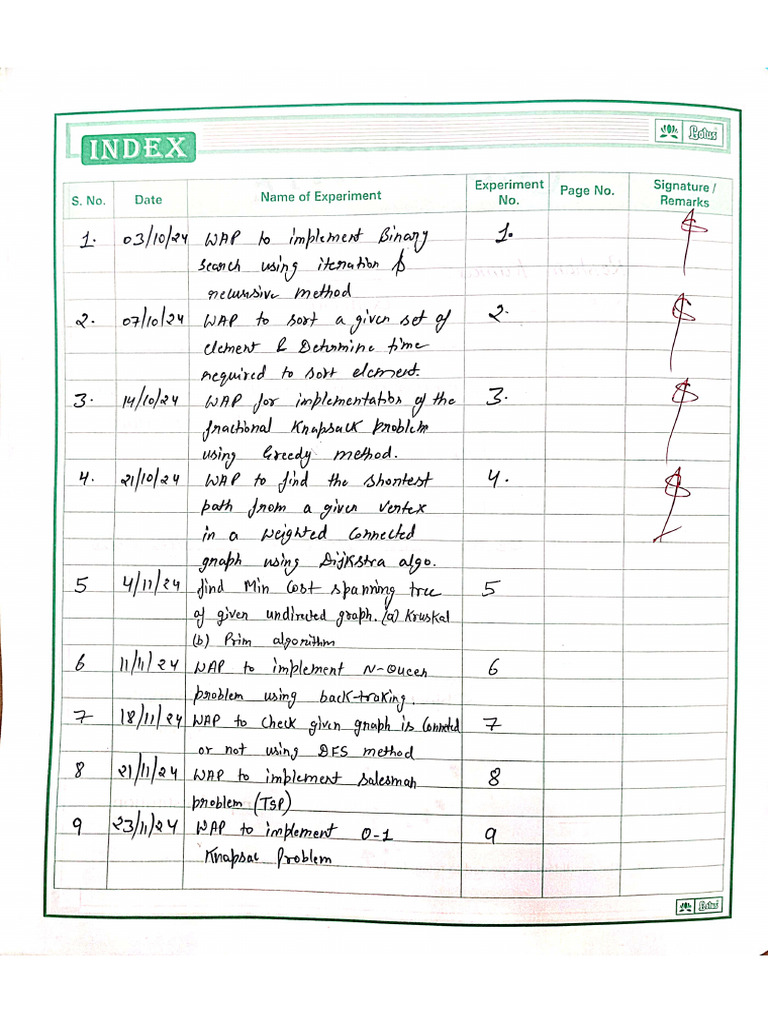 INDEX
Lotus
S. No. Date Name of Experiment Experiment No. Page No. Signature / Remarks
1. 03/10/24 WAP to implement Binary 1.
search using iteration &
recursive method
2. 07/10/24 WAP to sort a given set of 2.
element & Determine time
required to sort element.
3. 14/10/24 WAP for implementation of the 3.
fractional Knapsack Problem
using Greedy method.
4. 21/10/24 WAP to find the shortest 4.
path from a given vertex
in a weighted connected
graph using Dijkstra algo.
5 4/11/24 find Min Cost spanning tree 5
of given undirected graph. (a) Kruskal
(b) Prim algorithm
6 11/11/24 WAP to implement N-Queen 6
problem using back-traking.
7 18/11/24 WAP to check given graph is Connected 7
or not using DFS method
8 21/11/24 WAP to implement salesman 8
problem (TSP)
9 23/11/24 WAP to implement 0-1 9
Knapsac Problem
Lotus